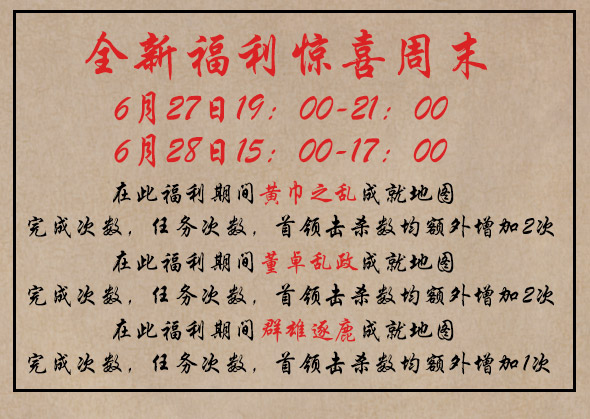 全新福利惊喜周末
6月27日19：00-21：00
6月28日15：00-17：00
在此福利期间黄巾之乱成就地图
完成次数，任务次数，首领击杀数均额外增加2次
在此福利期间董卓乱政成就地图
完成次数，任务次数，首领击杀数均额外增加2次
在此福利期间群雄逐鹿成就地图
完成次数，任务次数，首领击杀数均额外增加1次